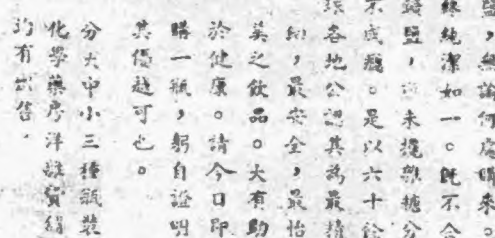 鹽，無論何處購來。
終純潔如一。既不含
鹽，未攙雜糖分
不成癮。是以六十餘
各地公認其為最精
，最安全，最怡
美之飲品。大有助
於健康。請今日即
購一瓶，躬自證明
其優越可也。
分大中小三種瓶裝
化學藥房洋雜貨舖
均有出售．